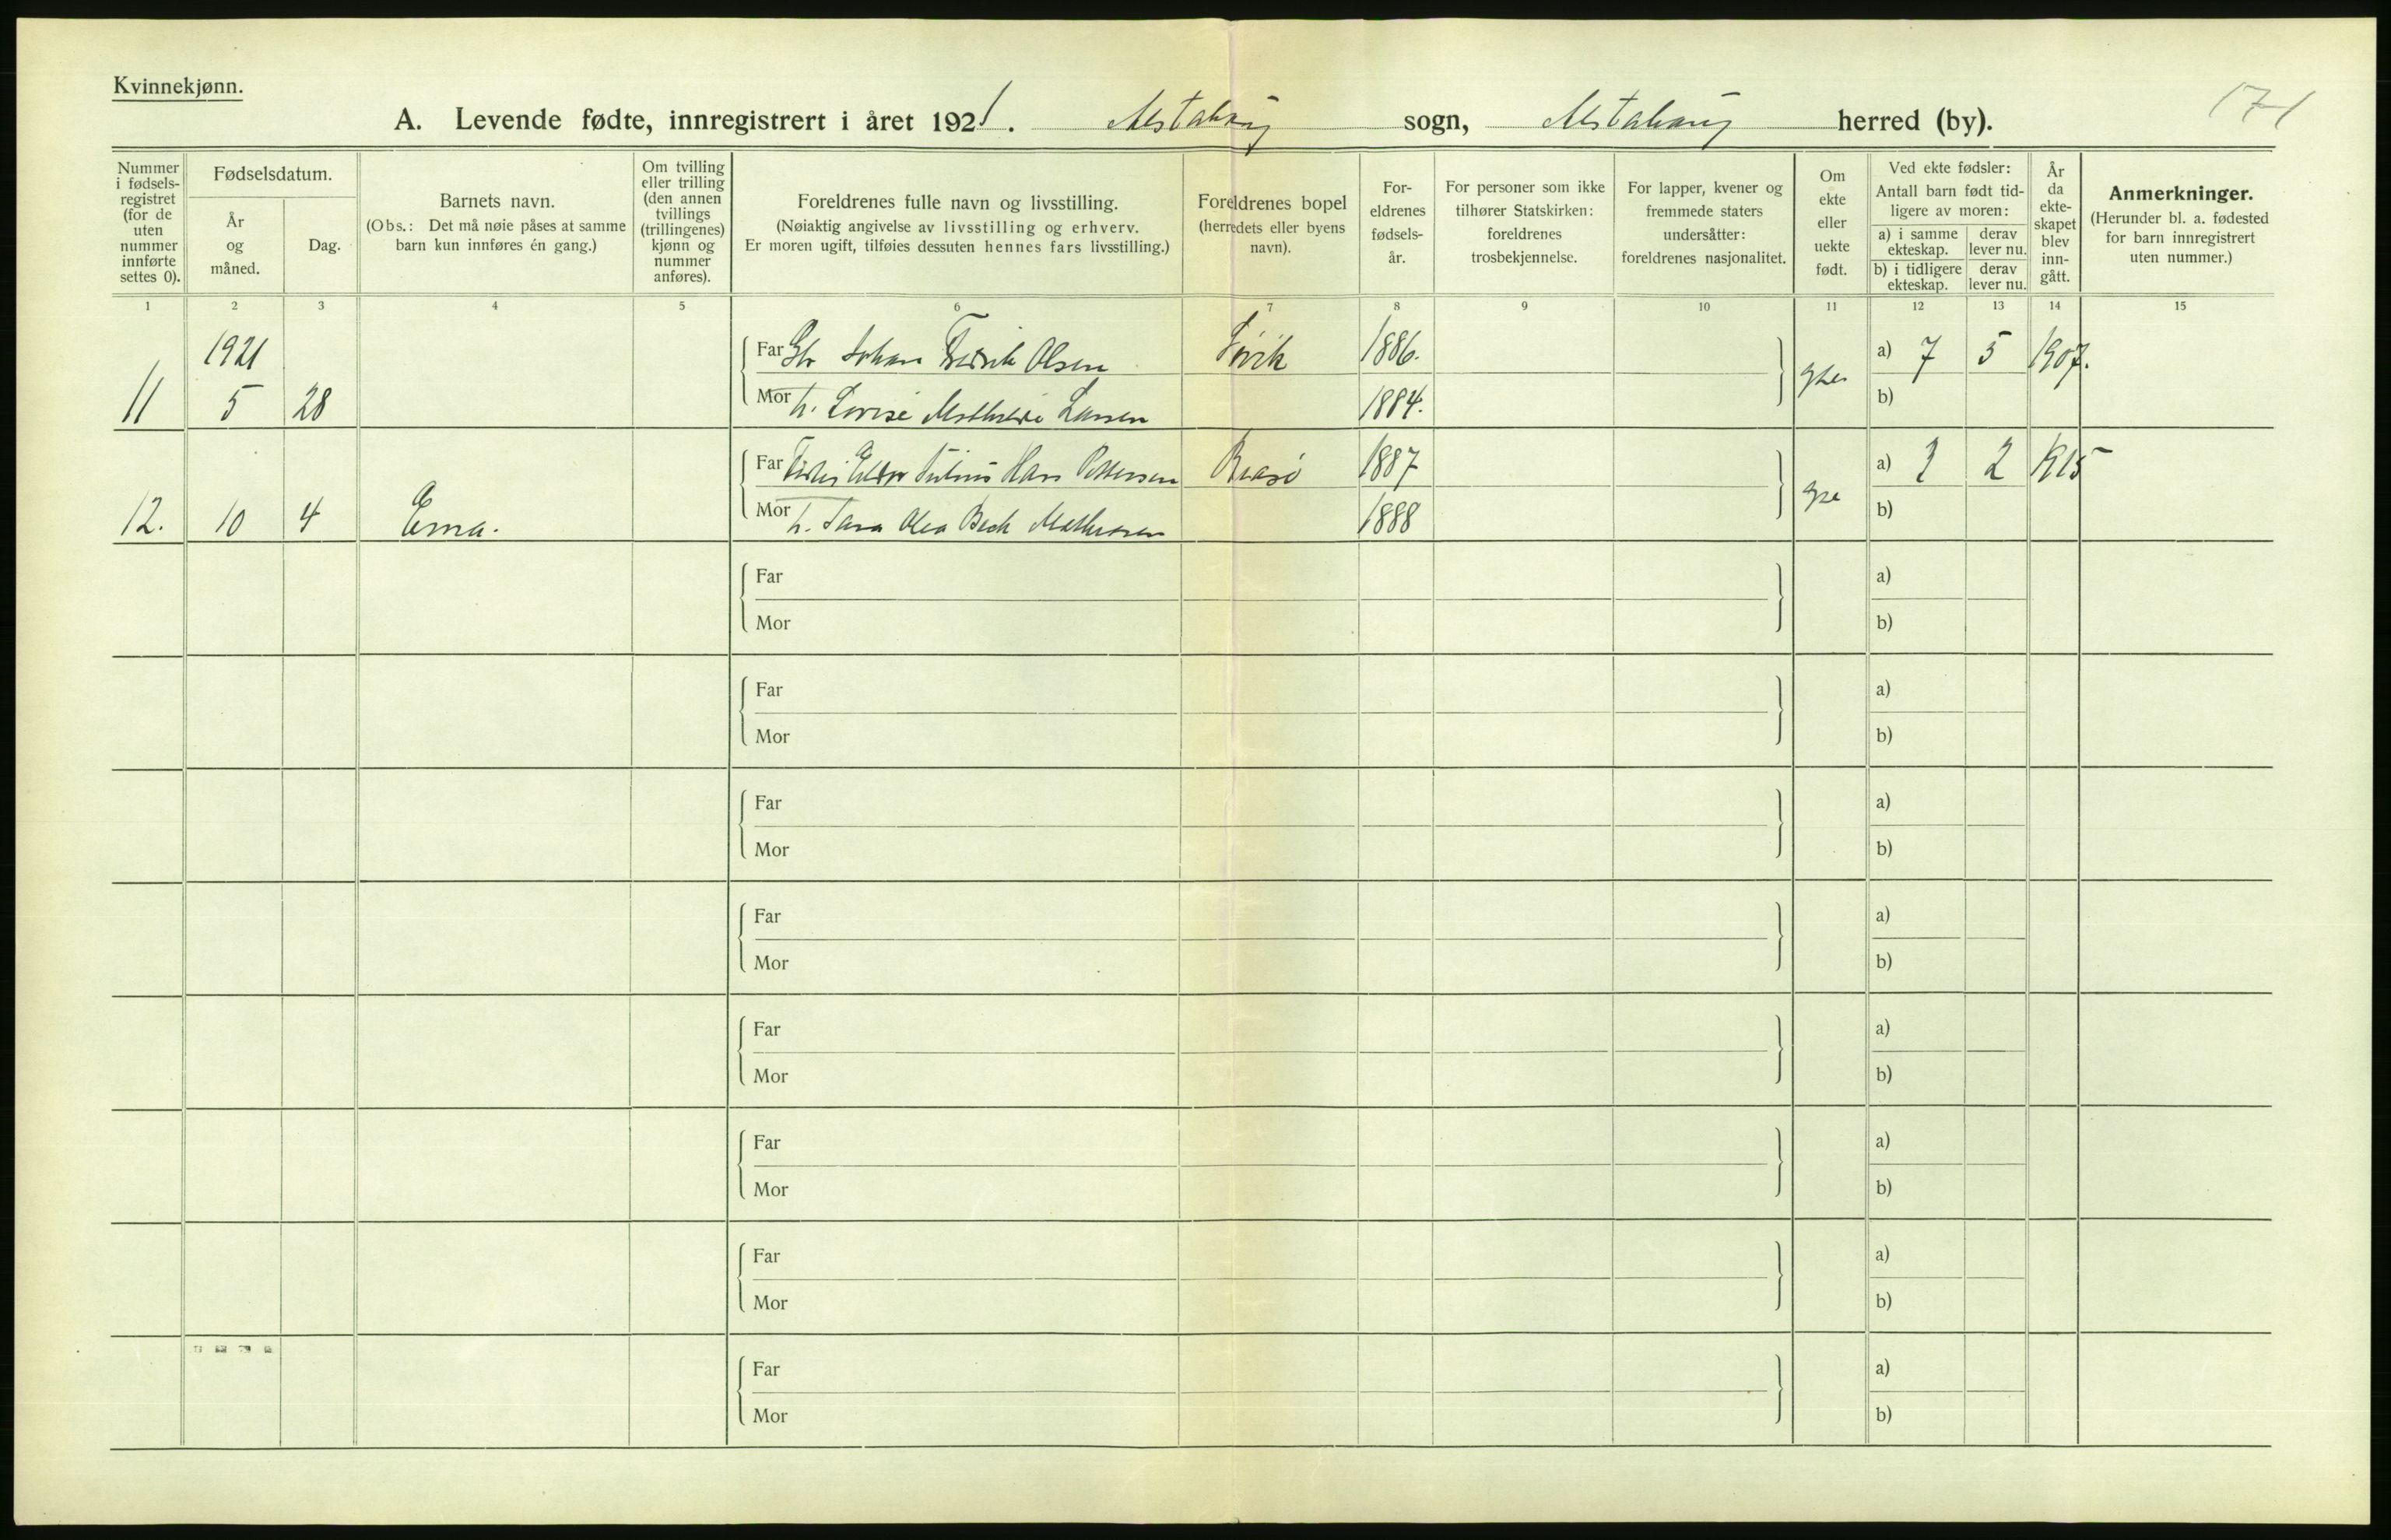 Kvinnekjønn.
171
A. Levende fødte, innregistrert i året 1921. Alstahaug sogn, Alstahaug herred (by).
Nummer i fødselsregistret (for de uten nummer innførte settes 0).
Fødselsdatum.
År og måned.
Dag.
Barnets navn.
(Obs.: Det må nøie påses at samme barn kun innføres én gang.)
Om tvilling eller trilling (den annen tvillings (trillingenes) kjønn og nummer anføres).
Foreldrenes fulle navn og livsstilling.
(Nøiaktig angivelse av livsstilling og erhverv.
Er moren ugift, tilføies dessuten hennes fars livsstilling.)
Foreldrenes bopel
(herredets eller byens navn).
Foreldrenes fødselsår.
For personer som ikke tilhører Statskirken: foreldrenes trosbekjennelse.
For lapper, kvener og fremmede staters undersåtter: foreldrenes nasjonalitet.
Om ekte eller uekte født.
Ved ekte fødsler:
Antall barn født tidligere av moren:
a) i samme ekteskap. derav lever nu.
b) i tidligere ekteskap. derav lever nu.
År da ekteskapet blev inngått.
Anmerkninger.
(Herunder bl. a. fødested for barn innregistrert uten nummer.)
1 2 3 4 5 6 7 8 9 10 11 12 13 14 15
1921
Far Johan Fredrik Olsen 1886. a) 7 5 1907.
11 5 28
Mor h. Lovise Larsen 1884. b)
Far Julius Hans Pettersen 1887 a) 3 2 1915
12. 10 4 Erna.
Mor h. Olea Beck 1888 b)
Far a)
Mor b)
Far a)
Mor b)
Far a)
Mor b)
Far a)
Mor b)
Far a)
Mor b)
Far a)
Mor b)
Far a)
Mor b)
Far a)
Mor b)